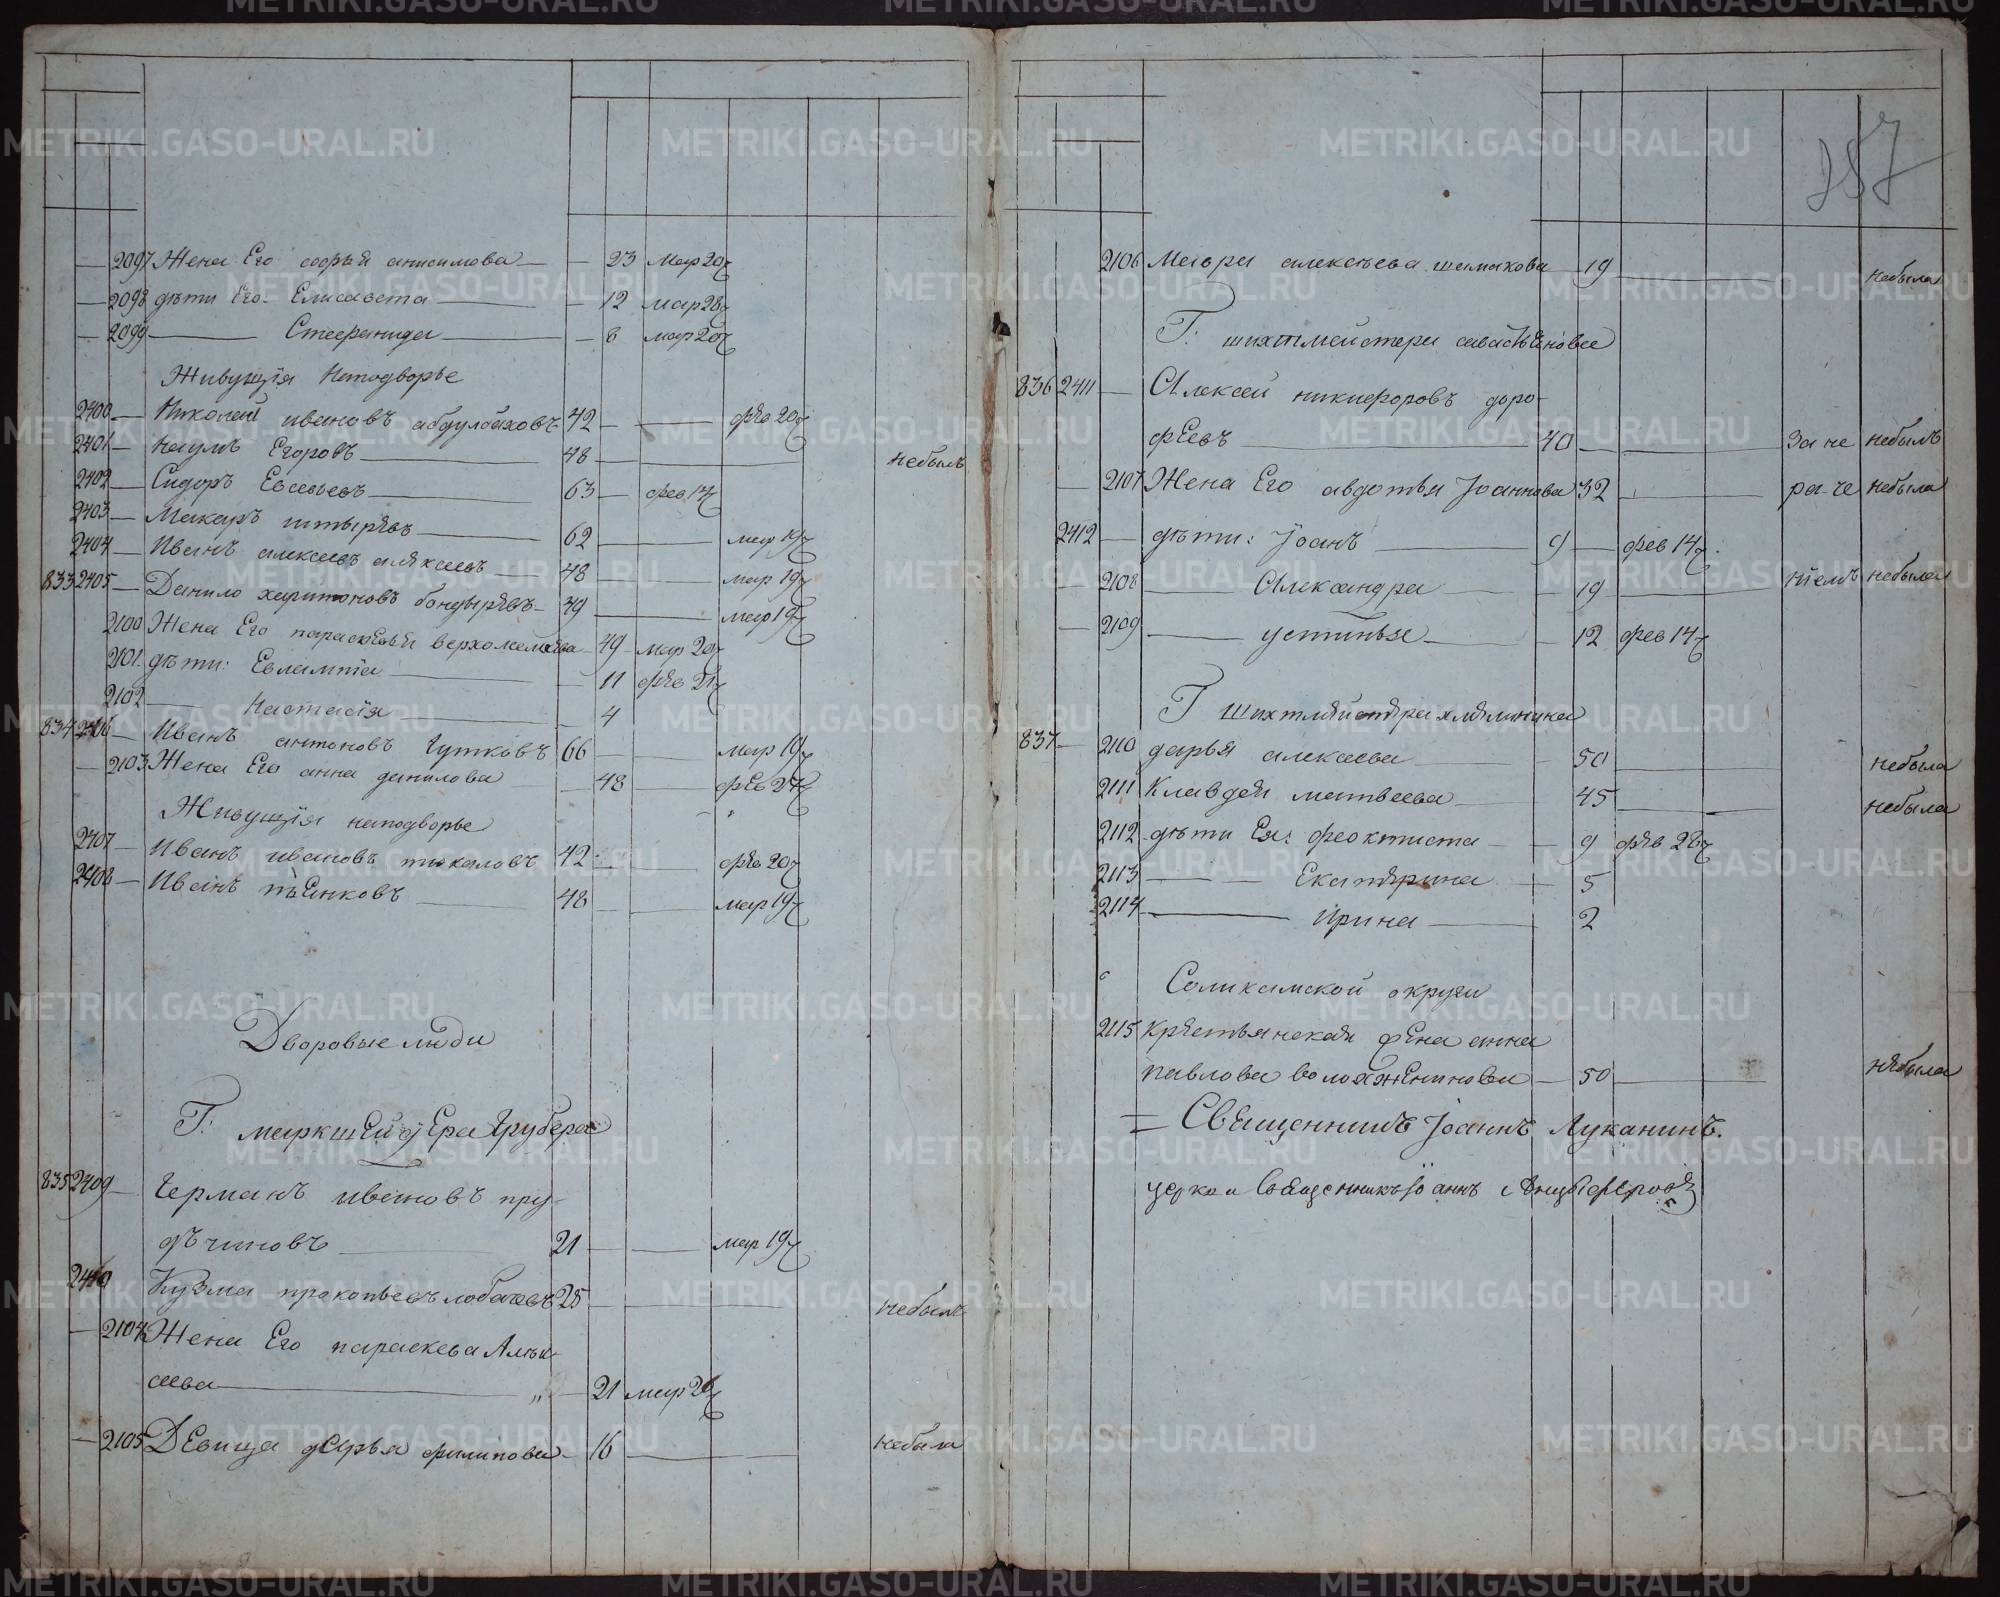 2097 Жена Его софья анисимова — 23 мар 20
2098 дѣти Его: Елисавета — 12 мар 28
2099 — Стефанида — 8 мар 20
Живущія Наподворье
2400 — Николай ивановъ абдулбаховъ 42 — фев 20
2401 — Наумъ Егоровъ — 48 — небылъ
2402 — Сидоръ Евсевьевъ — 63 — фев 14
2403 — Макаръ — 62 — мар 19
2404 — Иванъ алексеевъ — 48 — мар 19
833 2405 — Данило харитоновъ бондыревъ — 49 — мар 19
2100 Жена Его параскевья — 49 — мар 20
2101 дѣти: Евлампіа — 11 фев 21
2102 — Настасія — 4
834 2406 — Иванъ антоновъ Гутковъ 66 — мар 19
2103 Жена Его анна данилова — 48 — фев 27
Живущія наподворье
2407 — Иванъ ивановъ 42 — фев 20
2408 — Иванъ пѣенковъ — 48 — мар 19
Дворовые люди
Г: маркшейдера Грубера
835 2409 — Германъ ивановъ пру-
дѣчиновъ — 21 — мар 19
2410 Кузма прокопьевъ лобачевъ 25 — небылъ
— 2104 Жена Его параскева Алек-
сеева — 21 мар 20
— 2105 Девица дарья филипова — 16 — небыла
287
2106 Мавра алексѣева шамахова 19 — небыла
Г: шихтмейстера савастьянова
836 2411 — Алексей никифоровъ доро-
феевъ — 40 — За не небылъ
— 2107 Жена Его авдотья Іоаннова 32 — ра-че небыла
2412 — дѣти: Іоанъ — 9 — фев 14
— 2108 — Александра — 19 — ніемъ небыла
— 2109 — устинья — 12 фев 14
Г шихтмейстера хмелинина
837 — 2110 дарья алексеева — 50 — небыла
2111 Клавдея матвеева — 45 — небыла
2112 дѣти Ея: феоктиста — 9 фев 28
2113 — Екатерина — 5
2114 — Ирина — 2
Соликамской округи
2115 Крестьянская жена анна
павлова воложенинова — 50 — небыла
= Священникъ Іоаннъ Луканинъ.
церкви Священникъ Іоаннъ